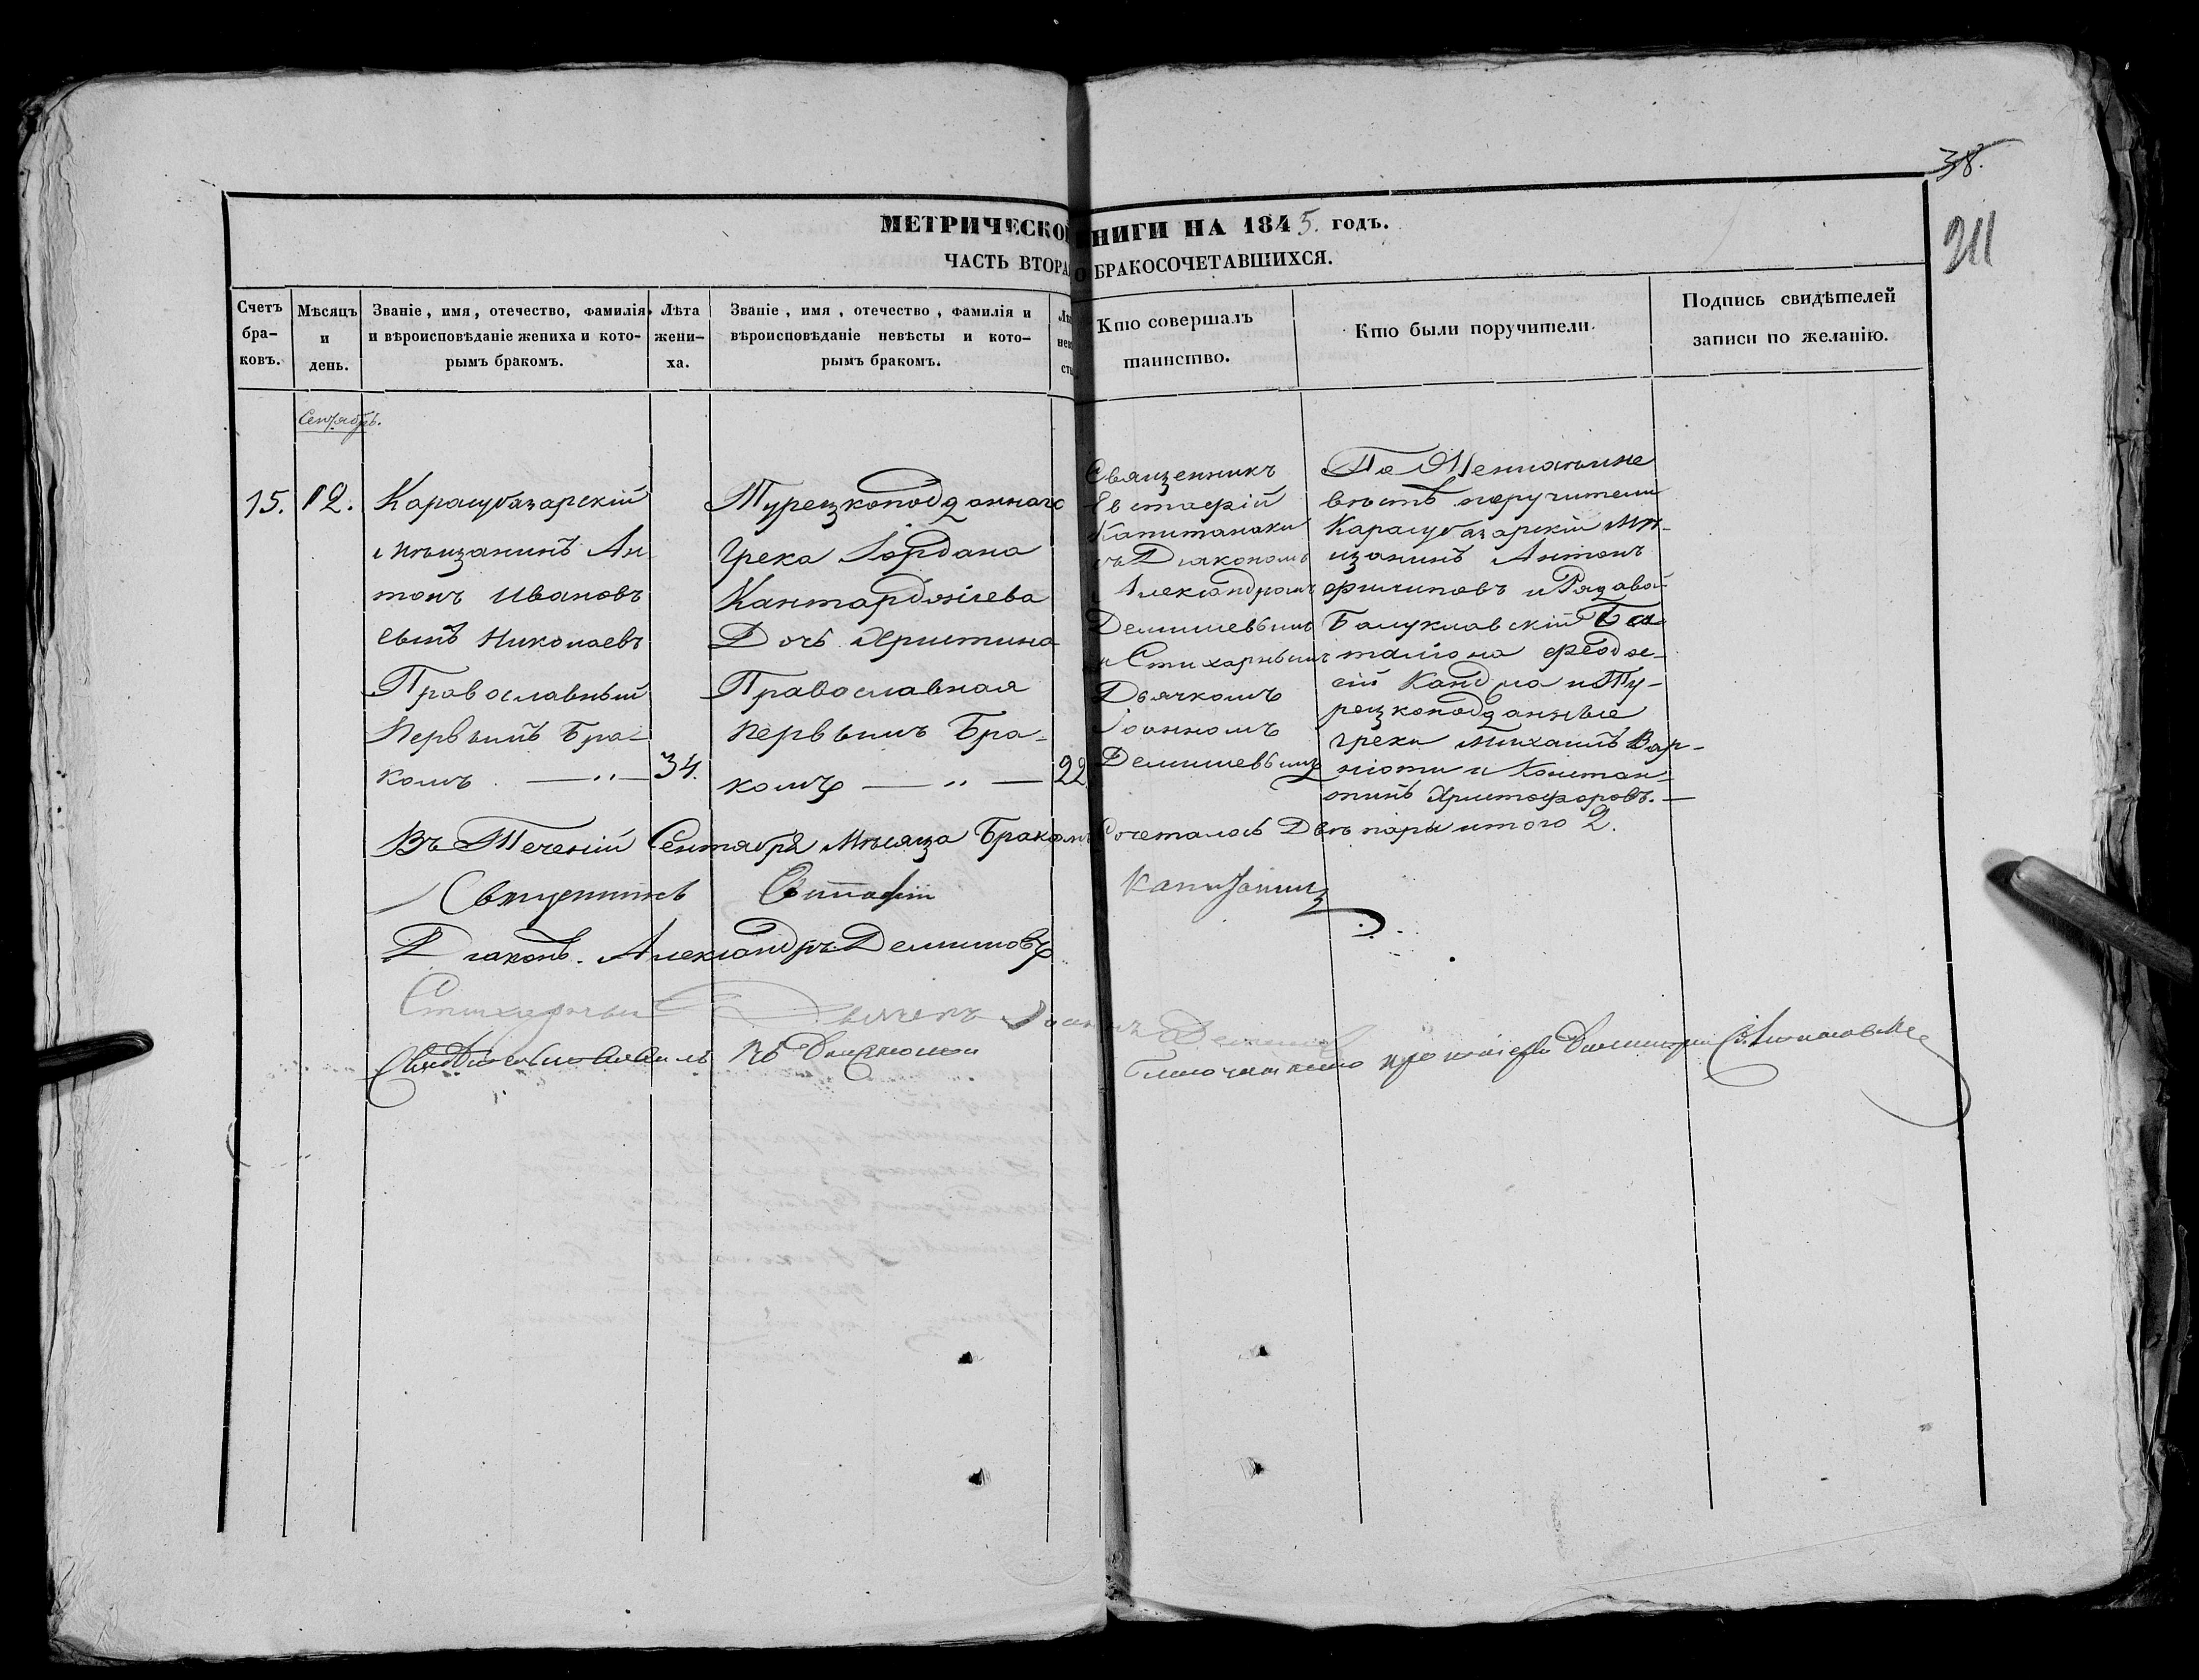 38.
211
МЕТРИЧЕСКО НИГИ НА 1845. годъ.
ЧАСТЬ ВТОРА О БРАКОСОЧЕТАВШИХСЯ.
Счетъ бра-ковъ.
Мѣсяцъ и день.
Званіе, имя, отечество, фамилія и вѣроисповѣданіе жениха и кото-рымъ бракомъ.
Лѣта жени-ха.
Званіе, имя, отечество, фамилія и вѣроисповѣданіе невѣсты и кото-рымъ бракомъ.
Лѣ нев ст
Кто совершалъ таинство.
Кто были поручители.
Подпись свидѣтелей записи по желанію.
Сентябрь.
15.
12.
Карасубазарскій
мѣщанинъ Ан
тонъ Ивановъ
сынъ Николаевъ
Православный
Первымъ Бра-
комъ — „ —
34.
Турецкоподданаго
Грека Іордана
Кантарджіева
Дочь Христина
Православная
первымъ Бра-
комъ — „ —
22
Священникъ
Евстафій
Капитанаки
съ Діякономъ
Александромъ
Демишевымъ
и Стихарнымъ
Дьячкомъ
Іоанномъ
Демишевымъ
По
вѣстѣ поручители
Карасубазарскій мѣ-
щанинъ Антонъ
Филиповъ и Рядавой
Балуклавскій Ба
таліона Феодо-
сій и Ту-
рецкоподданные
греки Михаилъ Вар-
и Констан-
тинъ Христофоровъ. —
Въ Теченій Сентября Мѣсяца Бракомъ Сочеталось Двѣ пары итого 2.
Священникъ Евстафій
Діаконъ. Александръ Демишовъ
Стихарный Дьячекъ Іоаннъ